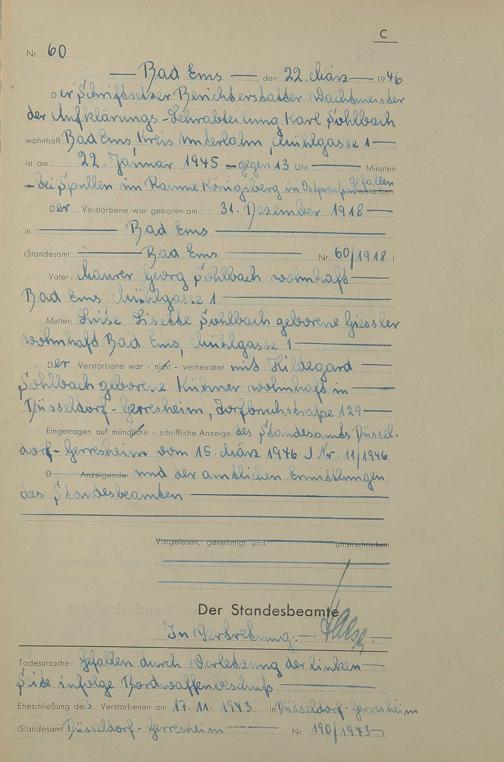 C
Nr. 60
Bad Ems, den 22. März 1946
Der Schriftsetzer Berichterstatter Wachtmeister
der Aufklärungs-Lehrabteilung Karl Sohlbach
wohnhaft Bad Ems, Kreis Unterlahn, Mühlgasse 1
ist am 22. Januar 1945 gegen 13 Uhr Minuten
bei Spallen im Raume Königsberg in Ostpreußen gefallen verstorben.
Der Verstorbene war geboren am 31. Dezember 1918
in Bad Ems
(Standesamt Bad Ems Nr. 60/1918)
Vater: Maurer Georg Sohlbach wohnhaft
Bad Ems Mühlgasse 1
Mutter: Luise Lisette Sohlbach geborene Giessler
wohnhaft Bad Ems, Mühlgasse 1
Der Verstorbene war - nicht - verheiratet mit Hildegard
Sohlbach geborene Kühner wohnhaft in
Düsseldorf-Gerresheim, Dorfbruchstraße 129
Eingetragen auf mündliche - schriftliche Anzeige des Standesamts Düssel-
dorf-Gerresheim vom 15. März 1946 J Nr. 11/1946
D Anzeigende und der amtlichen Ermittlungen
des Standesbeamten
Vorgelesen, genehmigt und unterschrieben
Der Standesbeamte
In Vertretung:
Todesursache: Gefallen durch Verletzung der linken
Seite infolge Bordwaffenbeschuß
Eheschließung des Verstorbenen am 17. 11. 1943 in Düsseldorf-Gerresheim
(Standesamt Düsseldorf-Gerresheim Nr. 190/1943)